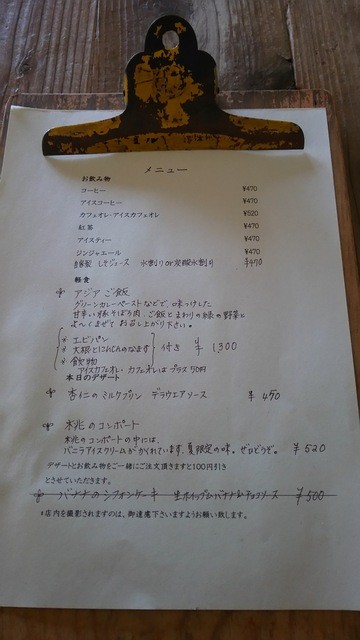 メニュー
お飲み物
コーヒー ¥470
アイスコーヒー ¥470
カフェオレ・アイスカフェオレ ¥520
紅茶 ¥470
アイスティー ¥470
ジンジャエール ¥470
自家製 しそジュース 水割り or 炭酸水割り ¥470
軽食
アジア ご飯
グリーンカレーペーストなどで、味つけした
甘辛い豚そぼろ肉、ご飯とまわりの緑の野菜に
よ〜くまぜて お召し上がり下さい。
エビパン
大根とにんじんのなます 付き ¥1,300
飲物
アイスカフェオレ・カフェオレは プラス 50円
本日のデザート
杏仁の ミルクプリン デラウエアソース ¥450
桃のコンポート
桃のコンポートの中には、
バニラアイスクリームがかくれています。夏限定の味。ぜひどうぞ。 ¥520
デザートとお飲み物をご一緒にご注文頂きますと100円引き
とさせていただきます。
バナナのシフォンケーキ 生ホイップとバナナ&チョコソース ¥500
*店内を撮影されますのは、御遠慮下さいますようお願い致します。